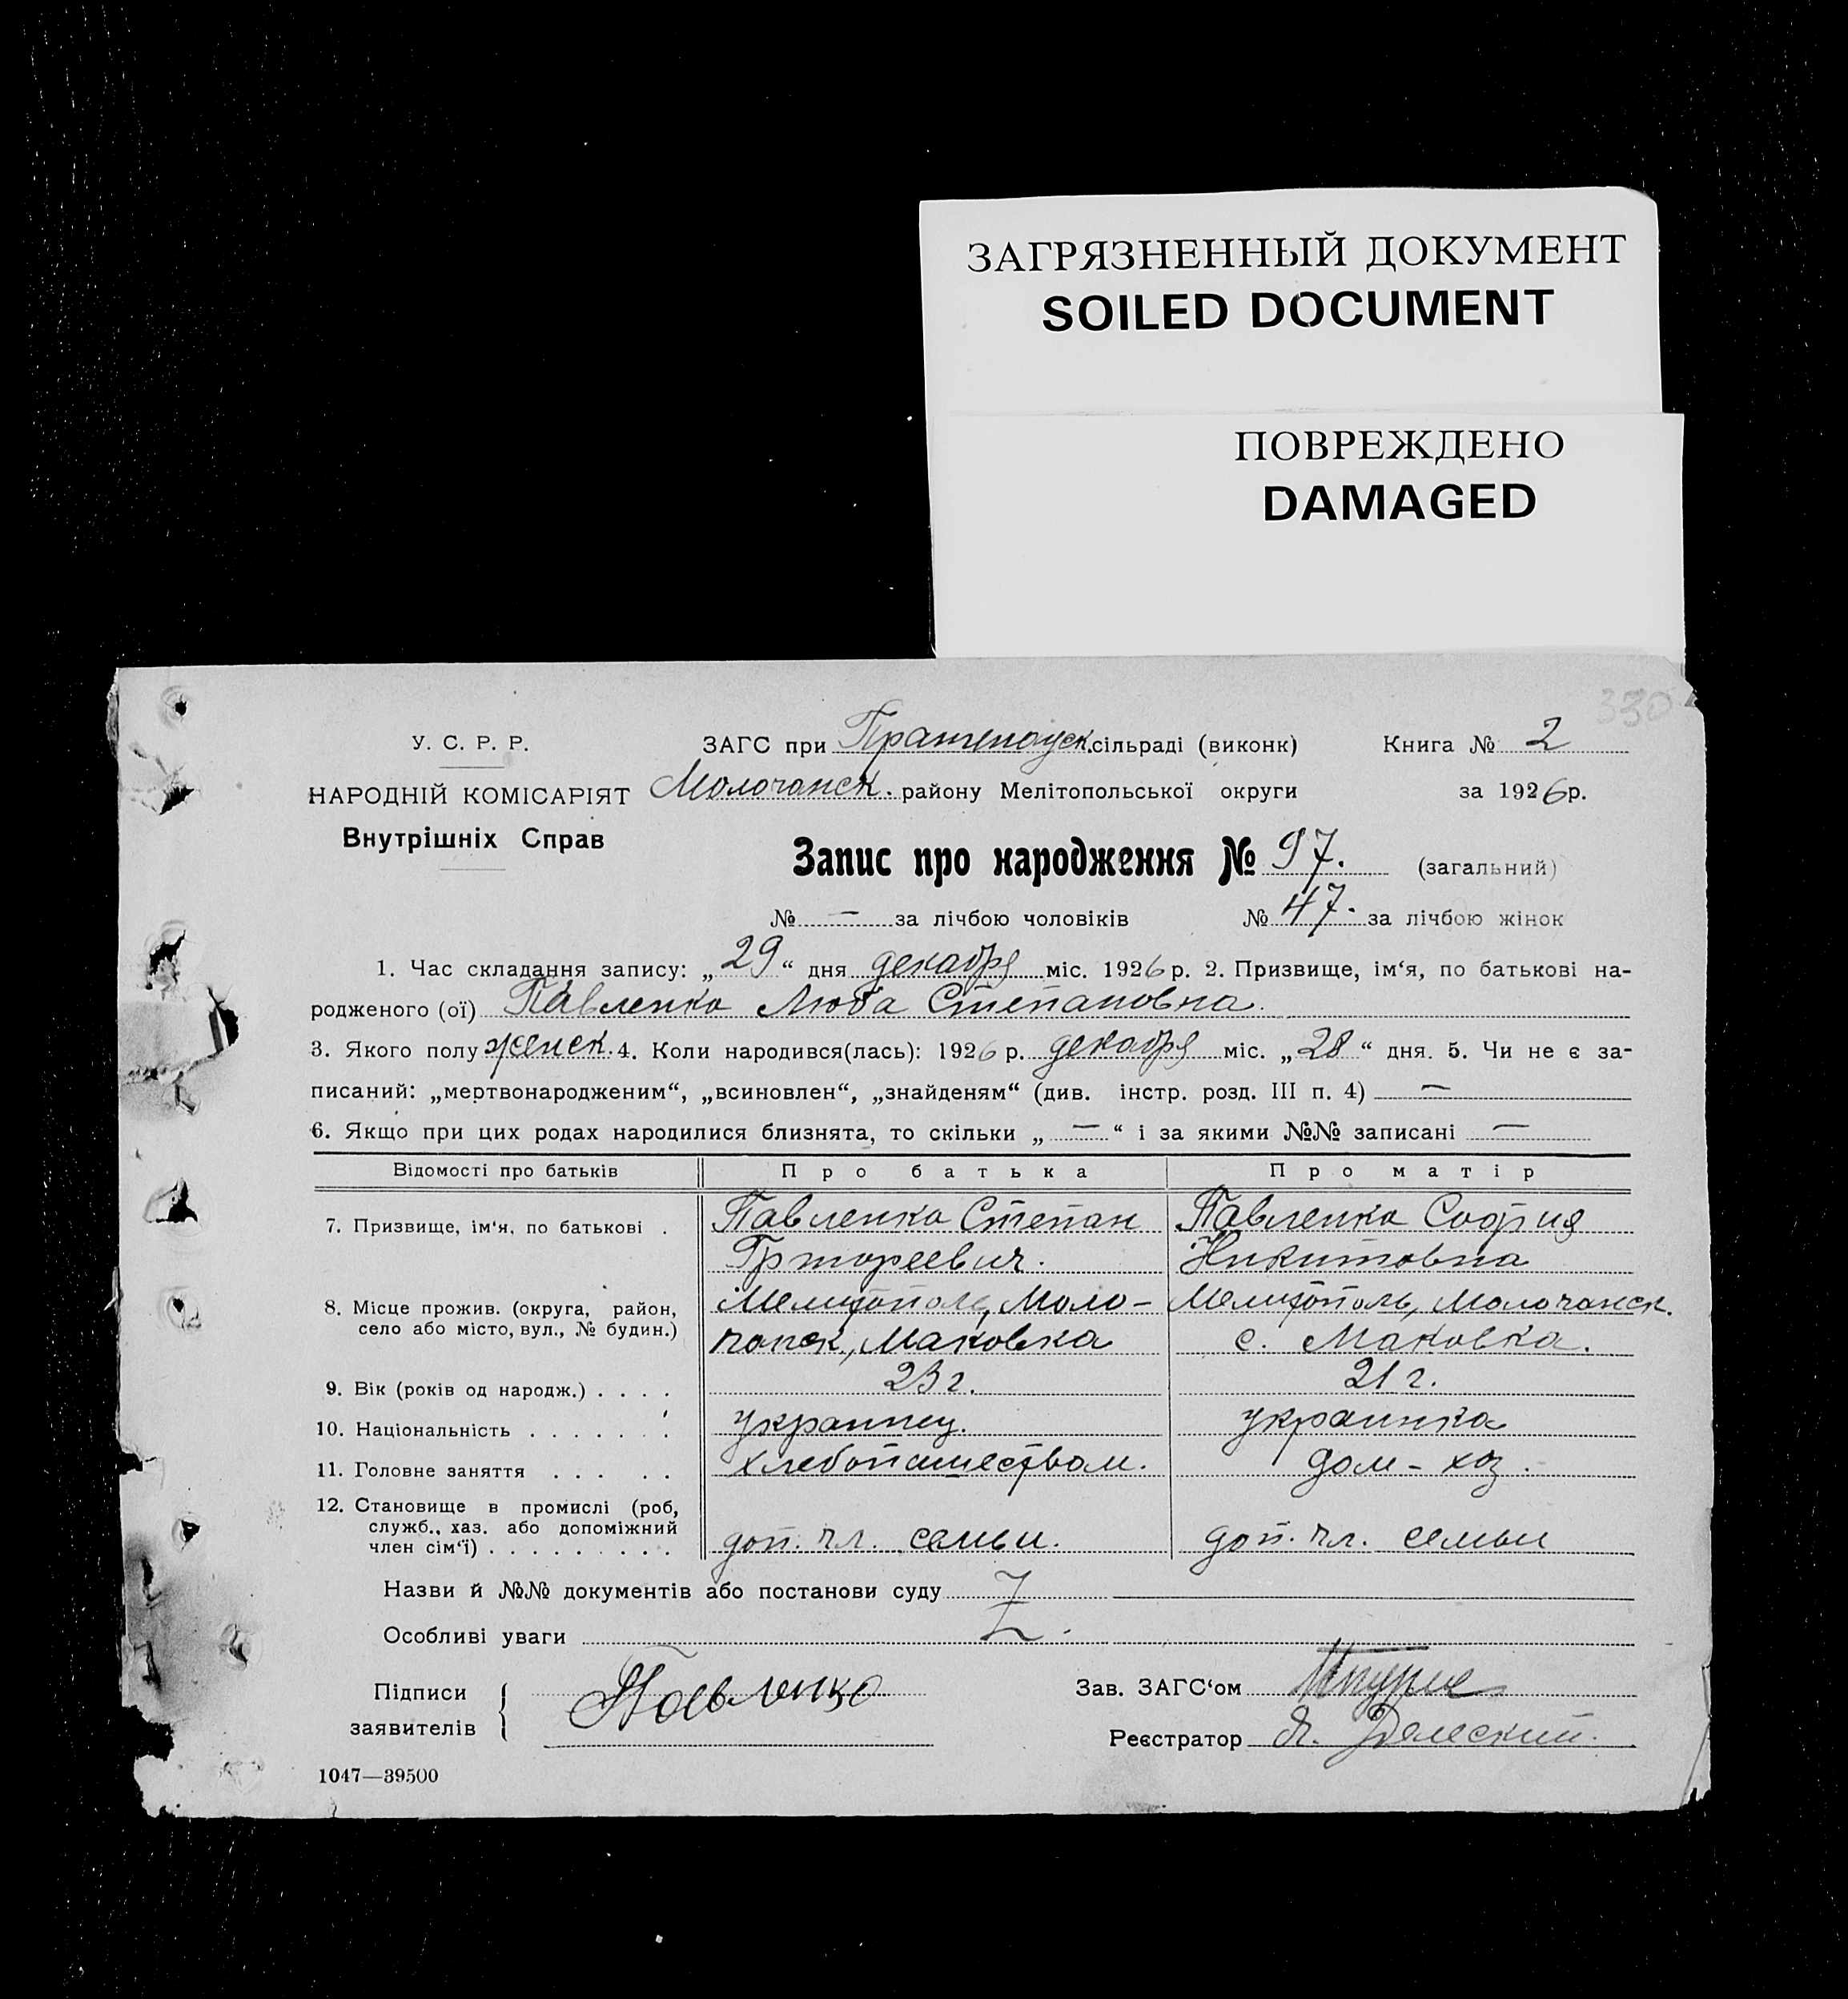 ЗАГРЯЗНЕННЫЙ ДОКУМЕНТ
SOILED DOCUMENT
ПОВРЕЖДЕНО
DAMAGED
330
У. С. Р. Р.
НАРОДНІЙ КОМІСАРІЯТ
Внутрішніх Справ
ЗАГС при сільраді (виконк) Книга № 2
Молочанск. району Мелітопольської округи за 1926 р.
Запис про народження № 97. (загальний)
№ — за лічбою чоловіків № 47. за лічбою жінок
1. Час складання запису: „29“ дня декабря міс. 1926 р. 2. Призвище, ім‘я, по батькові на-
родженого (ої) Павленко Люба Степановна.
3. Якого полу женск. 4. Коли народився(лась): 1926 р. декабря міс. „28“ дня. 5. Чи не є за-
писаний: „мертвонародженим“, „всиновлен“, „знайденям“ (див. інстр. розд. III п. 4) —
6. Якщо при цих родах народилися близнята, то скільки „—“ і за якими №№ записані —
Відомості про батьків Про батька Про матір
7. Призвище, ім‘я, по батькові . Павленко Степан Павленко София
Григореевич. Никитовна
8. Місце прожив. (округа, район, Мелитополь, Моло- Мелитополь, Молочанск.
село або місто, вул., № будин.) чанск, Маковка с. Маковка.
9. Вік (років од народж.) . . . . 23 г. 21 г.
10. Національність . . . . . . . украинец. украинка
11. Головне заняття . . . . . хлебопашеством. дом-хоз.
12. Становище в промислі (роб,
служб., хаз. або допоміжний
член сім‘ї) . . . . . . . . . доп. чл. семьи. доп. чл. семьи
Назви й №№ документів або постанови суду
Особливі уваги
Підписи
заявителів
Павленко
Зав. ЗАГС‘ом
Реєстратор
1047—39500